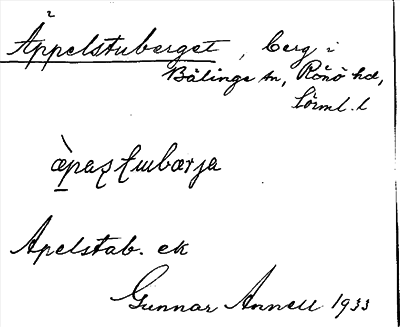 Äppelstuberget, berg i
Bälinge sn, Rönö hd,
Sörml. l
Apelstab. ek
Gunnar Annell 1933